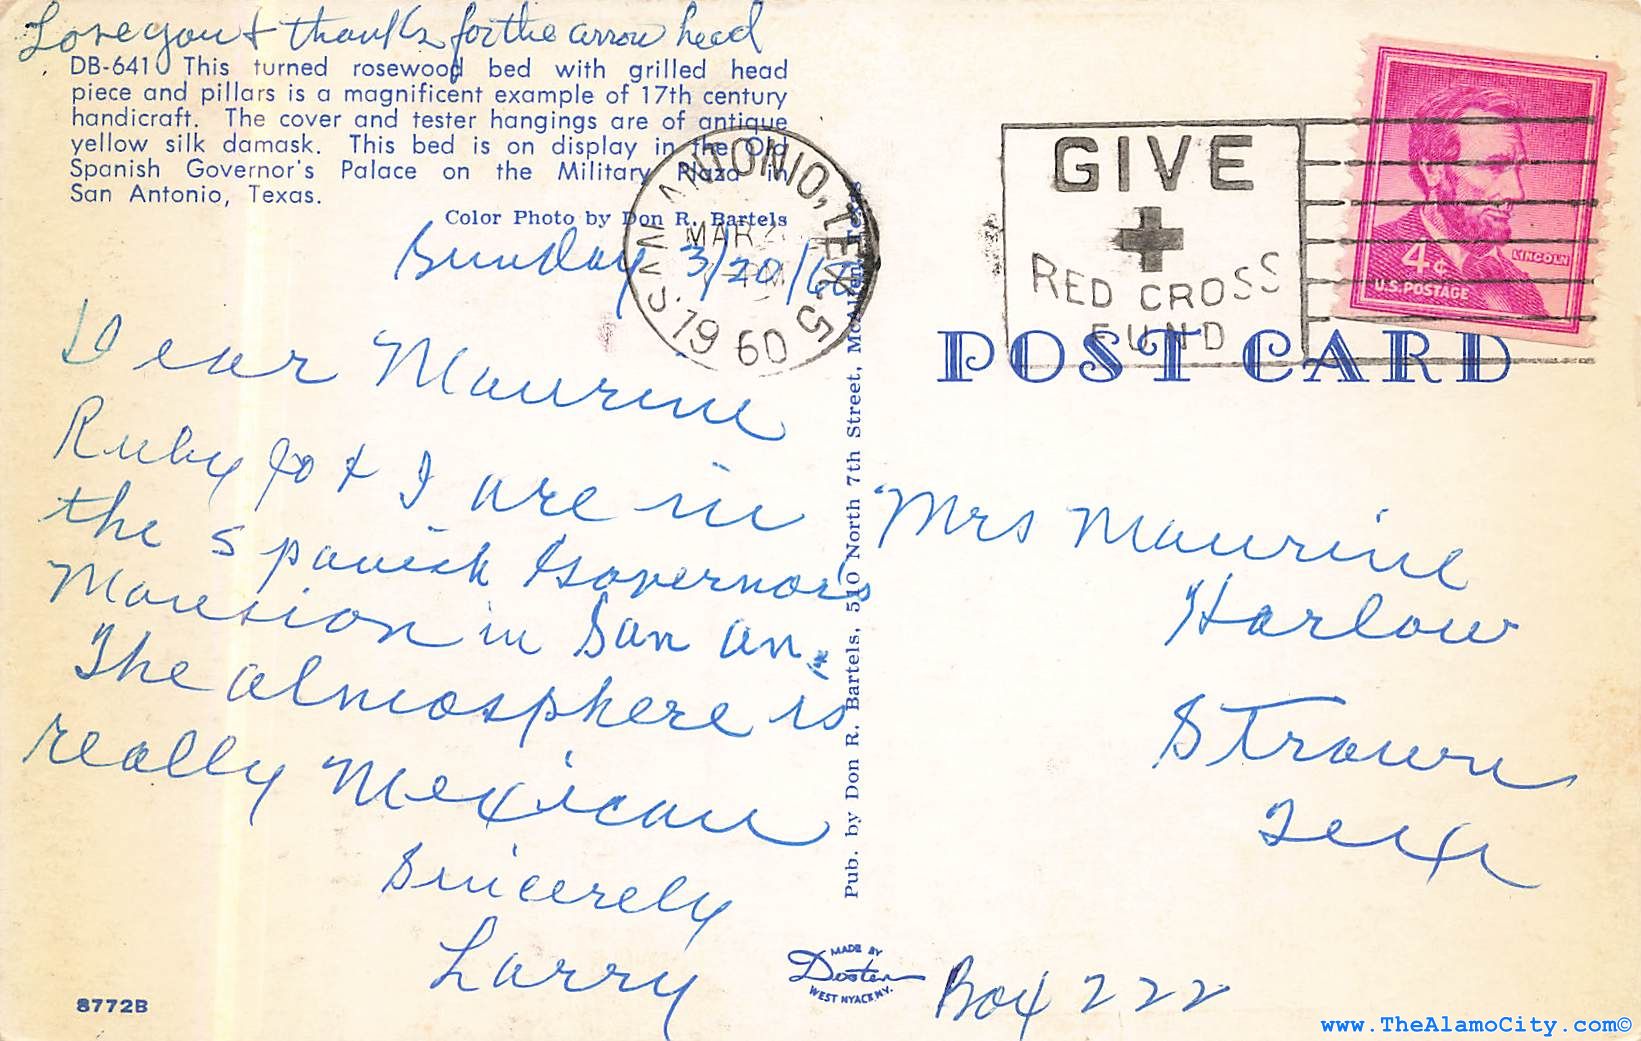 Love you & thanks for the arrow head
DB-641 This turned rosewood bed with grilled head
piece and pillars is a magnificent example of 17th century
handicraft. The cover and tester hangings are of antique
yellow silk damask. This bed is on display in the Old
Spanish Governor's Palace on the Military Plaza in
San Antonio, Texas.
Color Photo by Don R. Bartels
Sunday 3/20/60
Dear Maurine
Ruby Jo & I are in
the Spanish Governor's
Mansion in San An.
The atmosphere is
really Mexican
Sincerely
Larry
8772B
SAN ANTONIO, TEX. 5
MAR 2
PM
1960
GIVE
RED CROSS
FUND
4¢
LINCOLN
U.S. POSTAGE
POST CARD
Mrs Maurine
Harlow
Strawn
Tex
Box 222
Pub. by Don R. Bartels, 510 North 7th Street, McAllen, Texas
MADE BY
Dexter
WEST NYACK N.Y.
www.TheAlamoCity.com©